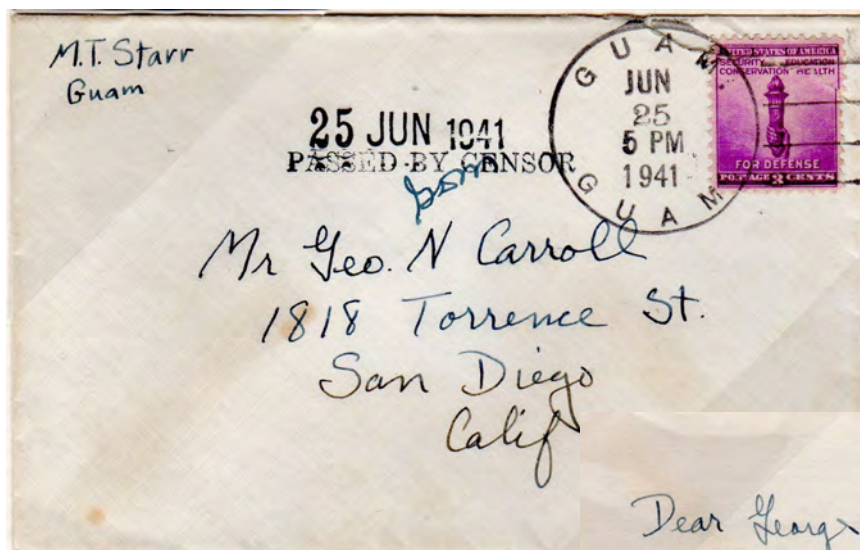 M.T. Starr
Guam
25 JUN 1941
PASSED BY CENSOR
GUAM
JUN
25
5 PM
1941
GUAM
UNITED STATES OF AMERICA
SECURITY EDUCATION
CONSERVATION HEALTH
FOR DEFENSE
POSTAGE 3 CENTS
Mr Geo. N Carroll
1818 Torrence St.
San Diego
Calif
Dear George